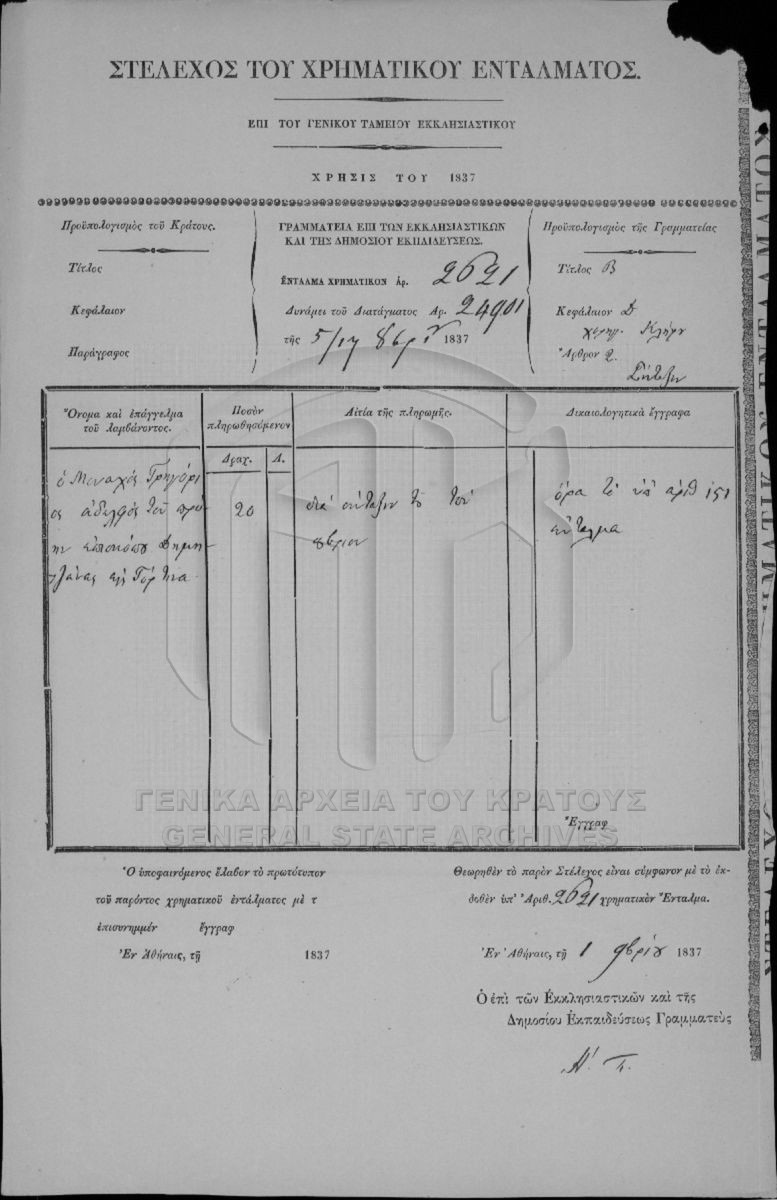 ΣΤΕΛΕΧΟΣ ΤΟΥ ΧΡΗΜΑΤΙΚΟΥ ΕΝΤΑΛΜΑΤΟΣ.
ΕΠΙ ΤΟΥ ΓΕΝΙΚΟΥ ΤΑΜΕΙΟΥ ΕΚΚΛΗΣΙΑΣΤΙΚΟΥ
ΧΡΗΣΙΣ ΤΟΥ 1837
Προϋπολογισμὸς τοῦ Κράτους.
Τίτλος
Κεφάλαιον
Παράγραφος
ΓΡΑΜΜΑΤΕΙΑ ΕΠΙ ΤΩΝ ΕΚΚΛΗΣΙΑΣΤΙΚΩΝ
ΚΑΙ ΤΗΣ ΔΗΜΟΣΙΟΥ ΕΚΠΑΙΔΕΥΣΕΩΣ.
ΕΝΤΑΛΜΑ ΧΡΗΜΑΤΙΚΟΝ ἀρ. 2621
Δυνάμει τοῦ Διατάγματος Αρ. 24901
τῆς 5/17 8βρίου 1837
Προϋπολογισμὸς τῆς Γραμματείας
Τίτλος Β
Κεφάλαιον Δ
χορηγ. Κλήρου
Ἄρθρον 2.
Σύνταξιν
Ὄνομα καὶ ἐπάγγελμα
τοῦ λαμβάνοντος.
Ποσὸν
πληρωθησόμενον
Δραχ. Λ.
Αἰτία τῆς πληρωμῆς.
Δικαιολογητικὰ ἔγγραφα
ὁ Μοναχὸς Γρηγόρι
ος ἀδελφὸς τοῦ πρώ
ην ἐπισκόπου Δημη
τζάνας
20
διὰ σύνταξίν του τοῦ
8βρίου
ὅρα τὸ ὑπ' ἀριθ 151
ἔνταλμα
Ἔγγραφ
Ὁ ὑποφαινόμενος ἔλαβον τὸ πρωτότυπον
τοῦ παρόντος χρηματικοῦ ἐντάλματος μὲ τ
ἐπισυνημμέν ἔγγραφ
Ἐν Ἀθήναις, τῇ 1837
Θεωρηθὲν τὸ παρὸν Στέλεχος εἶναι σύμφωνον μὲ τὸ ἐκ-
δοθὲν ὑπ' Ἀριθ. 2621 χρηματικὸν Ἔνταλμα.
Ἐν Ἀθήναις, τῇ 1 9βρίου 1837
Ὁ ἐπὶ τῶν Ἐκκλησιαστικῶν καὶ τῆς
Δημοσίου Ἐκπαιδεύσεως Γραμματεὺς
ΓΕΝΙΚΑ ΑΡΧΕΙΑ ΤΟΥ ΚΡΑΤΟΥΣ
GENERAL STATE ARCHIVES